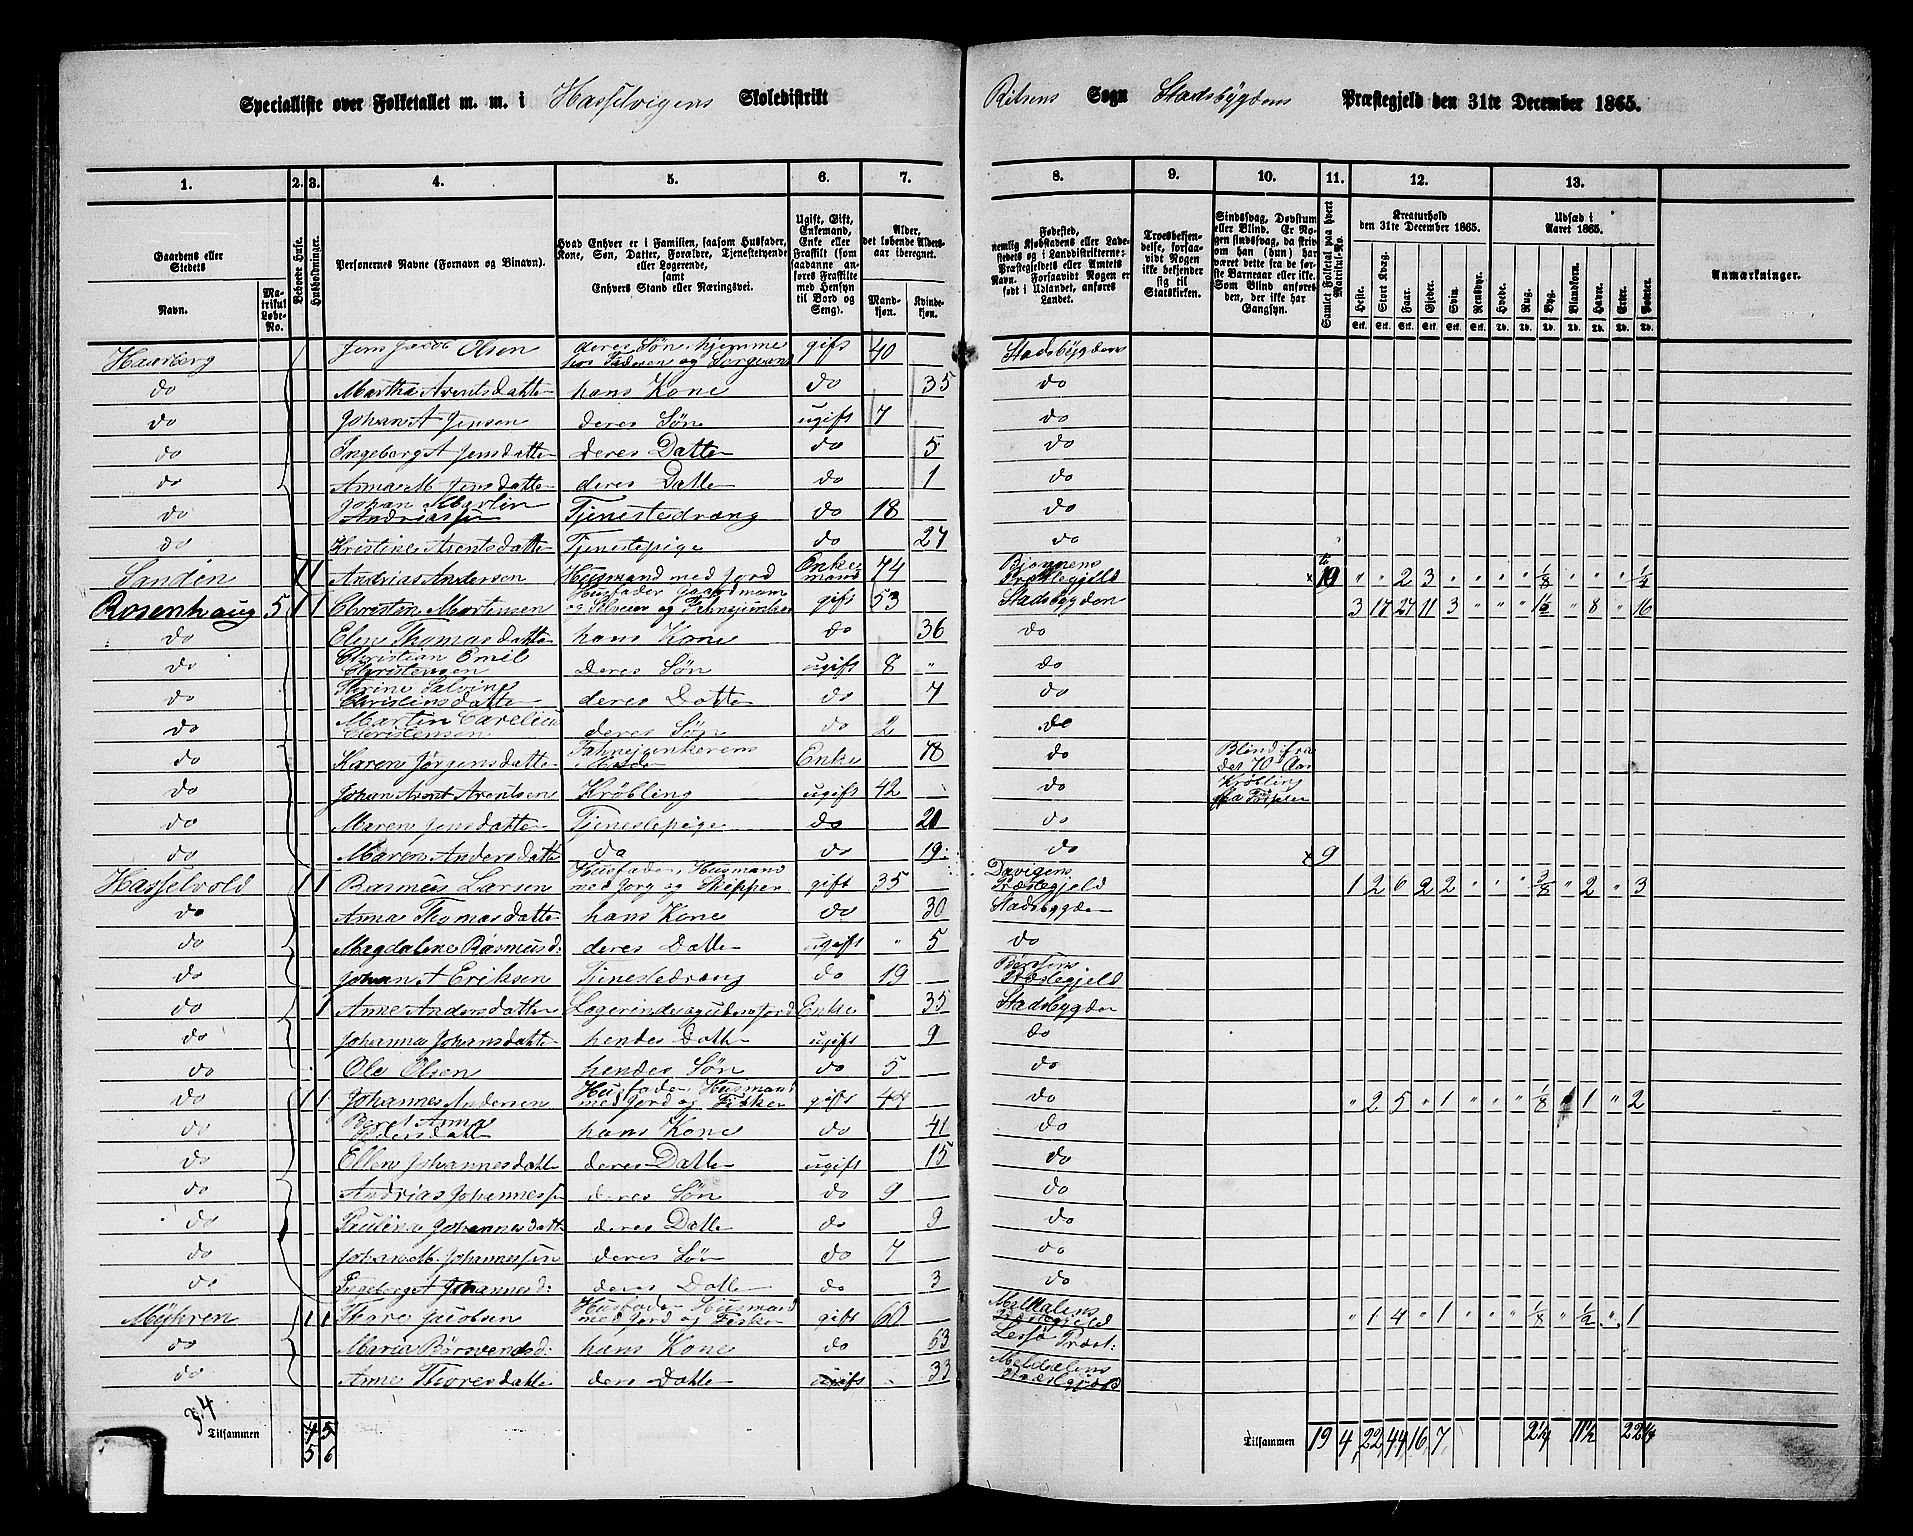 Specialliste over Folketallet m. m. i Hasselvigens Skoledistrikt Ritsens Sogn Stadsbygdens Præstegjeld den 31te December 1865.
1. 2. 3. 4. 5. 6. 7. 8. 9. 10. 11. 12. 13.
Gaardens eller Stedets
Navn.
Matrikul Løbe-No.
Beboede Huse.
Husholdninger.
Personernes Navne (Fornavn og Binavn).
Hvad Enhver er i Familien, saasom Husfader, Kone, Søn, Datter, Forældre, Tjenestetyende eller Logerende,
samt
Enhvers Stand eller Næringsvei.
Ugift, Gift, Enkemand, Enke eller Fraskilt (som saadanne anføres Fraskilte med Hensyn til Bord og Seng).
Alder, det løbende Aldersaar iberegnet.
Mandkjøn. Kvindekjøn.
Fødested, nemlig Kjøbstadens eller Ladestedets og i Landdistrikterne: Præstegjeldets eller Amtets Navn. Forsaavidt Nogen er født i Udlandet, anføres Landet.
Troesbekjendelse, forsaavidt Nogen ikke bekjender sig til Statskirken.
Sindssvag, Døvstum eller Blind. Er Nogen sindssvag, da skrives om han (hun) har været dette fra de første Barneaar eller ikke. Som Blind anføres den, der ikke har Gangsyn.
Samlet Folketal paa hvert Matrikul-No.
Kreaturhold den 31te December 1865.
Heste. Stort Kvæg. Faar. Gjeder. Svin. Rensdyr.
Udsæd i Aaret 1865.
Hvede. Rug. Byg. Blandkorn. Havre. Erter. Poteter.
Anmærkninger.
Haarberg Jens Jacob Olsen deres Søn, hjemme hos Faderen og Sergeant gift 40 Stadsbygden
do Martha Arentsdatter hans Kone do 35 do
do Johan A Jensen deres Søn ugift 7 do
do Ingeborg A Jensdatter deres Datter do 5 do
do Anna M. Jensdatter deres Datter do 1 do
do Johan Martin Andriassen Tjenestedræng do 18 do
do Kristine Arentsdatter Tjenestepige do 27 do
Sanden 1 1 Andrias Andersen Husmand med Jord Enkemand 74 Præstegjeld 10 " " 2 3 " " " " 1/8 " " "
Rosenhaug 5 1 1 Christen Mortensen Husfader Gaardmand gift 53 Stadsbygden 3 17 27 11 3 " " " " 8 " 16
do Elen Thomasdatter hans Kone do 36 do
do Christian Emil Christensen deres Søn ugift 8 " do
do Trine Salvine Christensdatter deres Datter do 7 do
do Martin Carelius Christensen deres Søn do 2 do
do Karen Jørgensdatter Fahnejunkerens Moder Enke 78 do Blind fra det 70 Aar
do Johan Arnt Arentsen Krøbling ugift 42 do Krøbling
do Maren Jensdatter Tjenestepige do 21 do
do Maren Andersdatter do do 19 do 9
Hasselvold 1 1 Rasmus Larsen Husfader, Husmand med Jord og Skipper gift 35 Davigens Præstegjeld 1 2 6 2 2 " " " 3/8 " 2 " 3
do Anna Thomasdatter hans Kone do 30 Stadsbygden
do Magdalene Rasmusd: deres Datter ugift " 5 do
do Johan A Eriksen Tjenestedræng do 19 Præstegjeld
do 1 Anne Andersdatter Logerinde Enke 35 Stadsbygden
do Johanna Johansdatter hendes Datter ugift 9 do
do Ole Olsen hendes Søn do 5 do
do 1 1 Johannes Andersen Husfader, Husmand med Jord og Fisker gift 44 do " 2 5 " 1 " " " 1/8 1 " 2
do Beret Anna Pedersdatter hans Kone do 41 do
do Ellen Johannesdatter deres Datter ugift 15 do
do Andrias Johannessen deres Søn do 9 do
do Paulina Johannesdatter deres Datter do 9 do
do Johan M. Johannessen deres Søn do 7 do
do Ingeborg A Johannesd: deres Datter do 3 do
Myhren 1 1 Thore Jacobsen Husfader Husmand med Jord og Fisker gift 60 Meldalens Præstegjeld " 1 4 " 1 " " " 1/8 " 1/2 " 1
do Maria Børsvendsd: hans Kone do 63 Lessø Præst:
do Anne Thoresdatter deres Datter ugift 33 Meldalens Præstegjeld
34
Tilsammen 4 5 Tilsammen 19 4 22 44 16 7 2 1/4 11 1/2 22 1/4
5 6